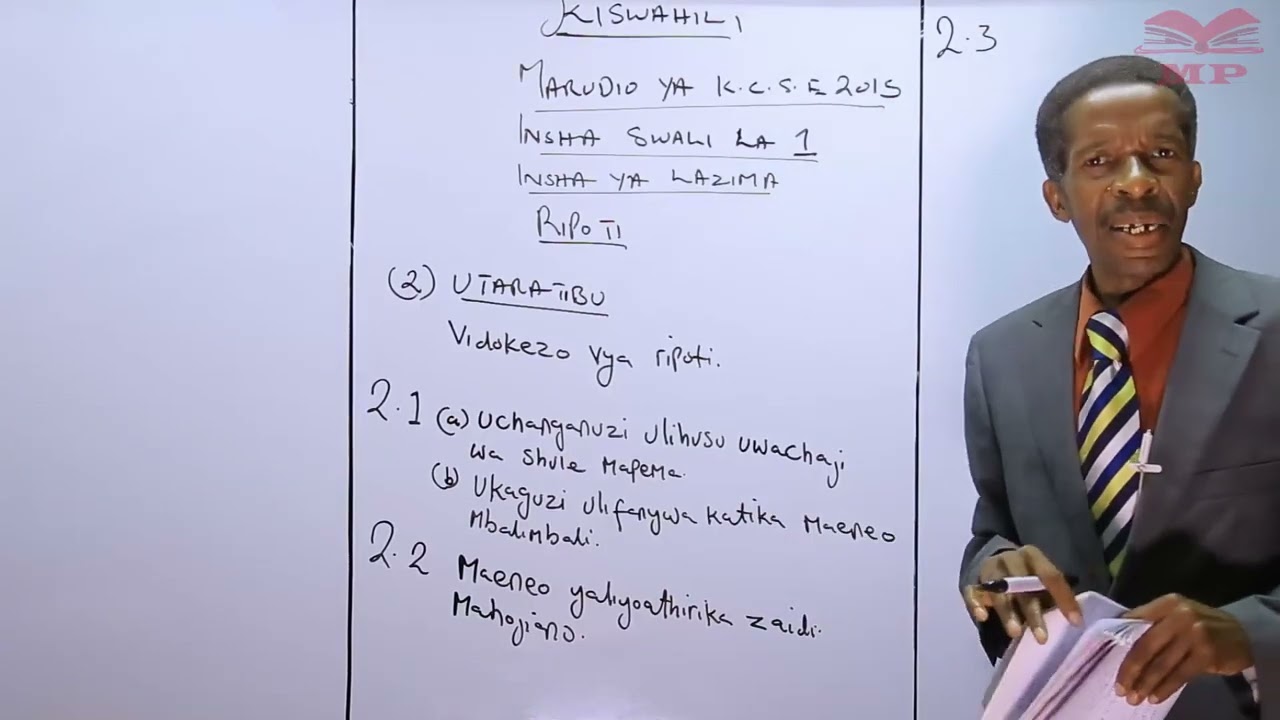 KISWAHILI
MARUDIO YA K.C.S.E 2015
INSHA SWALI LA 1
INSHA YA LAZIMA
RIPOTI
(2) UTARATIBU
Vidokezo vya ripoti.
2.1 (a) Uchanganuzi ulihusu uwachaji
wa shule mapema.
(b) Ukaguzi ulifanywa katika maeneo
mbalimbali.
2.2 Maeneo yaliyoathirika zaidi.
Mahojiano.
2.3
MP